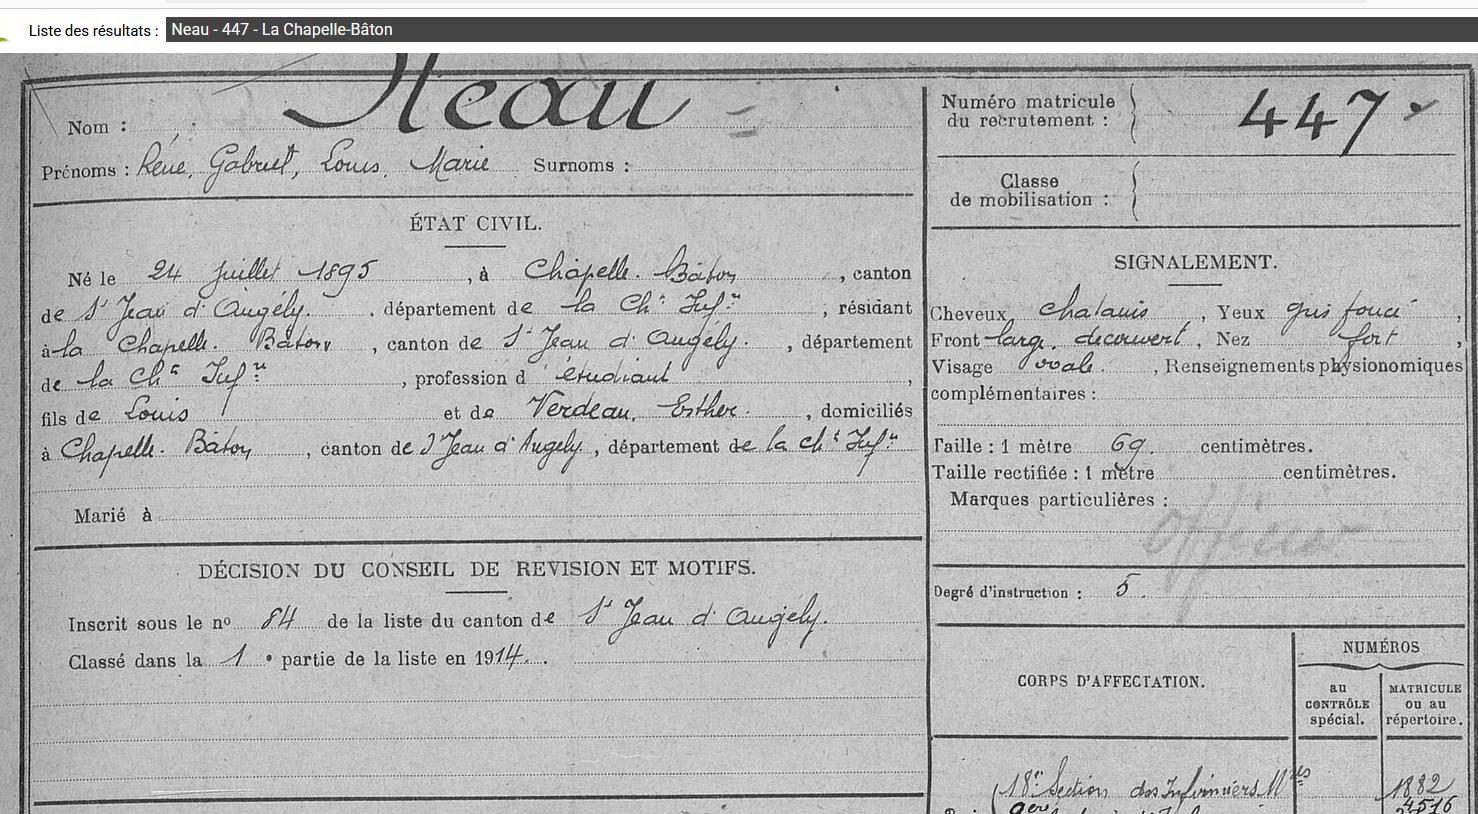 Liste des résultats : Neau - 447 - La Chapelle-Bâton
Nom : Neau
Prénoms : René, Gabriel, Louis, Marie Surnoms :
ÉTAT CIVIL.
Né le 24 Juillet 1895, à Chapelle-Bâton, canton
de St Jean d'Angély, département de la Chte Infre, résidant
à la Chapelle-Bâton, canton de St Jean d'Angély, département
de la Chte Infre, profession d'étudiant,
fils de Louis et de Verdeau, Esther, domiciliés
à Chapelle-Bâton, canton de St Jean d'Angely, département de la Chte Infre
Marié à
DÉCISION DU CONSEIL DE REVISION ET MOTIFS.
Inscrit sous le no 84 de la liste du canton de St Jean d'Angély.
Classé dans la 1e partie de la liste en 1914.
Numéro matricule
du recrutement : 447
Classe
de mobilisation :
SIGNALEMENT.
Cheveux chatains, Yeux gris foncé,
Front large découvert, Nez fort,
Visage ovale, Renseignements physionomiques
complémentaires :
Taille : 1 mètre 69 centimètres.
Taille rectifiée : 1 mètre centimètres.
Marques particulières :
officier
Degré d'instruction : 5.
CORPS D'AFFECTATION.
NUMÉROS
au
CONTRÔLE
spécial.
MATRICULE
ou au
répertoire.
18e Section des Infirmiers Mres 1882
4516